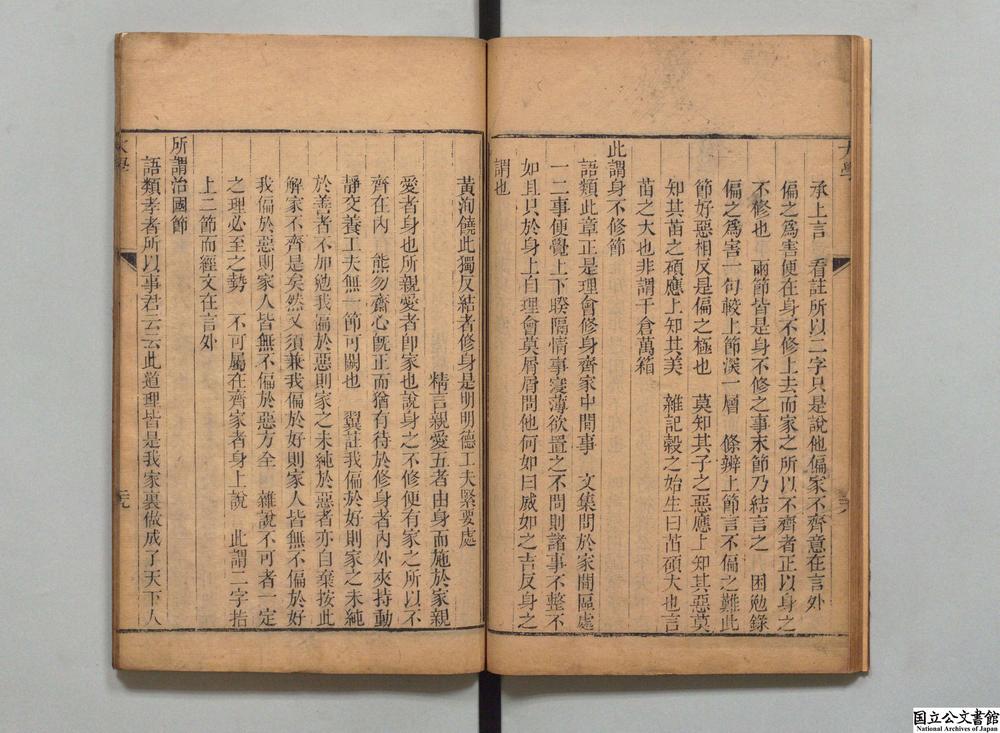 大學
承上言　看註所以二字只是說他偏家不齊意在言外
偏之爲害便在身不修上去而家之所以不齊者正以身之
不修也　兩節皆是身不修之事末節乃結言之　困勉錄
偏之爲害一句較上節深一層　條辨上節言不偏之難此
節好惡相反是偏之極也　莫知其子之惡應上知其惡莫
知其苗之碩應上知其美　雜記穀之始生曰苗碩大也言
苗之大也非謂千倉萬箱
此謂身不修節
語類此章正是理會修身齊家中間事　文集問於家間區處
一二事便覺上下睽隔情事寖薄欲置之不問則諸事不整不
如且只於身上自理會莫屑屑問他何如曰威如之吉反身之
謂也
黃洵饒此獨反結者修身是明明德工夫緊要處
精言親愛五者由身而施於家親
愛者身也所親愛者卽家也說身之不修便有家之所以不
齊在內　熊勿齋心旣正而猶有待於修身者內外夾持動
靜交養工夫無一節可闕也　翼註我偏於好則家之未純
於善者不加勉我偏於惡則家之未純於惡者亦自棄按此
解家不齊是矣然又須兼我偏於好則家人皆無不偏於好
我偏於惡則家人皆無不偏於惡方全　雜說不可者一定
之理必至之勢　不可屬在齊家者身上說　此謂二字指
上二節而經文在言外
所謂治國節
語類孝者所以事君云云此道理皆是我家裏做成了天下人
大學
元
国立公文書館
National Archives of Japan